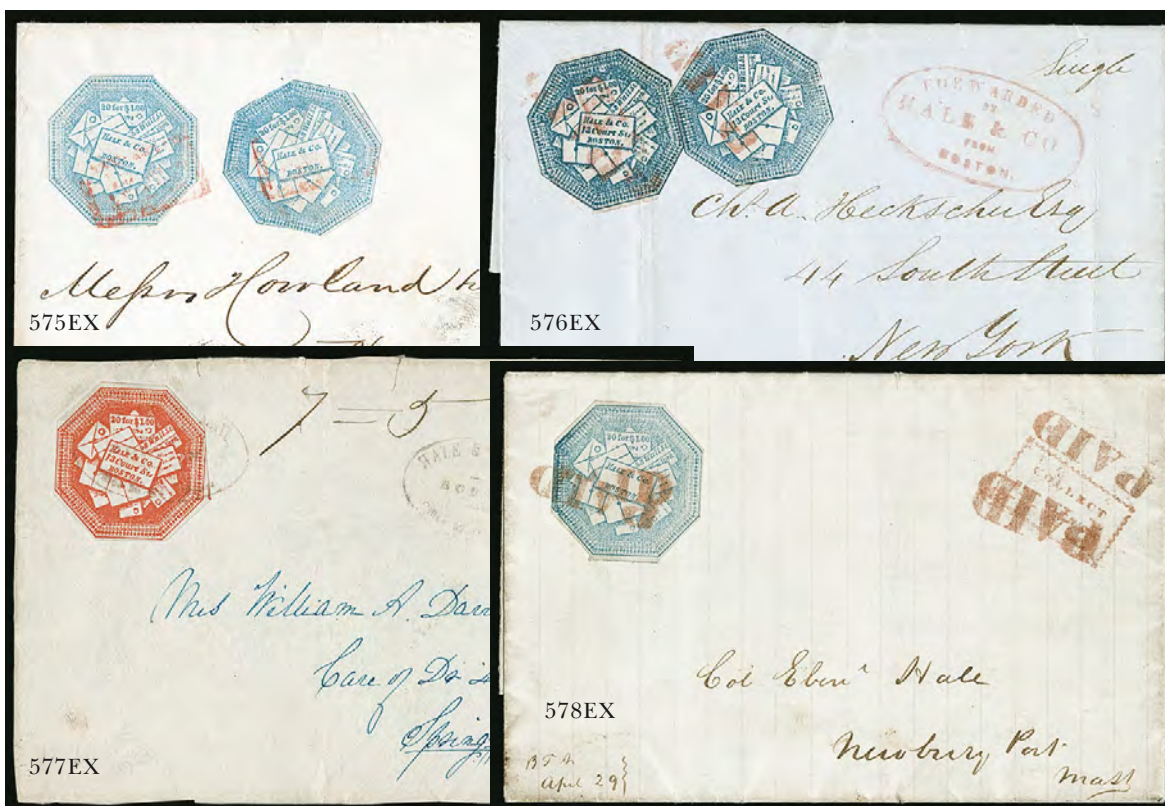 20 for $1.00
HALE & Co.
BOSTON.
20 for $1.00
HALE & Co.
BOSTON.
Messrs Howland
575EX
HALE & Co.
13 Court St.
BOSTON.
20 for $1.00
HALE & Co.
13 Court St.
BOSTON.
Single
FORWARDED
BY
HALE & CO
FROM
BOSTON.
Chs. A. Heckscher Esq
44 South Street
New York
576EX
20 for $1.00
HALE & Co.
13 Court St.
BOSTON.
7 = 5
HALE &
BOS
Mrs William A.
Care of Dr
Spring
577EX
20 for $1.00
HALE & Co.
13 Court St.
BOSTON.
PAID
PAID
COLLECT
PAID
Col Ebenr Hale
Newbury Port
Mass
578EX
April 29